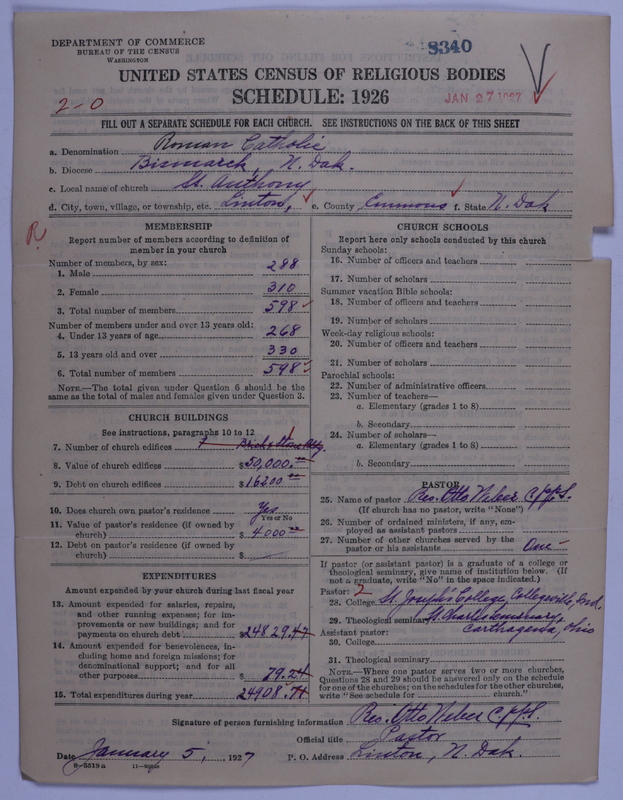 DEPARTMENT OF COMMERCE
BUREAU OF THE CENSUS
WASHINGTON
8340
UNITED STATES CENSUS OF RELIGIOUS BODIES
SCHEDULE: 1926
2-0
JAN 27 1927
FILL OUT A SEPARATE SCHEDULE FOR EACH CHURCH. SEE INSTRUCTIONS ON THE BACK OF THIS SHEET
a. Denomination Roman Catholic
b. Diocese Bismarck, N. Dak.
c. Local name of church St. Anthony
d. City, town, village, or township, etc. Linton, e. County Emmons f. State N. Dak
R
MEMBERSHIP
Report number of members according to definition of
member in your church
Number of members, by sex:
1. Male 288
2. Female 310
3. Total number of members 598
Number of members under and over 13 years old:
4. Under 13 years of age 268
5. 13 years old and over 330
6. Total number of members 598
NOTE.—The total given under Question 6 should be the
same as the total of males and females given under Question 3.
CHURCH BUILDINGS
See instructions, paragraphs 10 to 12
7. Number of church edifices 1 Brick & Stone Bldg.
8. Value of church edifices $50,000.00
9. Debt on church edifices $16200 00
10. Does church own pastor's residence Yes
Yes or No
11. Value of pastor's residence (if owned by
church) $ 4000 00
12. Debt on pastor's residence (if owned by
church) $
EXPENDITURES
Amount expended by your church during last fiscal year
13. Amount expended for salaries, repairs,
and other running expenses; for im-
provements or new buildings; and for
payments on church debt $24829.47
14. Amount expended for benevolences, in-
cluding home and foreign missions; for
denominational support; and for all
other purposes $ 79.24
15. Total expenditures during year $24908.71
CHURCH SCHOOLS
Report here only schools conducted by this church
Sunday schools:
16. Number of officers and teachers
17. Number of scholars
Summer vacation Bible schools:
18. Number of officers and teachers
19. Number of scholars
Week-day religious schools:
20. Number of officers and teachers
21. Number of scholars
Parochial schools:
22. Number of administrative officers
23. Number of teachers—
a. Elementary (grades 1 to 8)
b. Secondary
24. Number of scholars—
a. Elementary (grades 1 to 8)
b. Secondary
PASTOR
25. Name of pastor Rev. Otto Weber C.PP.S.
(If church has no pastor, write "None")
26. Number of ordained ministers, if any, em-
ployed as assistant pastors
27. Number of other churches served by the
pastor or his assistants One
If pastor (or assistant pastor) is a graduate of a college or
theological seminary, give name of institution below. (If
not a graduate, write "No" in the space indicated.)
Pastor: 2
28. College St. Joseph's College, Collegeville, Ind.
29. Theological seminary St. Charles Seminary,
Carthagena, Ohio
Assistant pastor:
30. College
31. Theological seminary
NOTE.—Where one pastor serves two or more churches,
Questions 28 and 29 should be answered only on the schedule
for one of the churches; on the schedules for the other churches,
write "See schedule for church."
Signature of person furnishing information Rev. Otto Weber C.PP.S.
Official title Pastor
Date January 5, 1927 P. O. Address Linton, N. Dak.
8-5519a